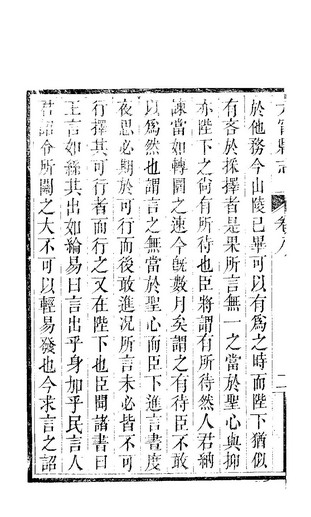 於他務今山陵已畢可以有為之時而陛下猶似
有吝於採擇者是果所言無一之當於聖心與抑
亦陛下之尚有所待也臣將謂有所待然人君納
諫當如轉圜之速今既數月矣謂之有待臣不敢
以為然也謂言之無當於聖心而臣下進言晝度
夜思必期於可行而後敢進況所言未必皆不可
行擇其可行者而行之又在陛下也臣聞諸書曰
王言如絲其出如綸易曰言出乎身加乎民言人
君詔令所關之大不可以輕易發也今求言之詔